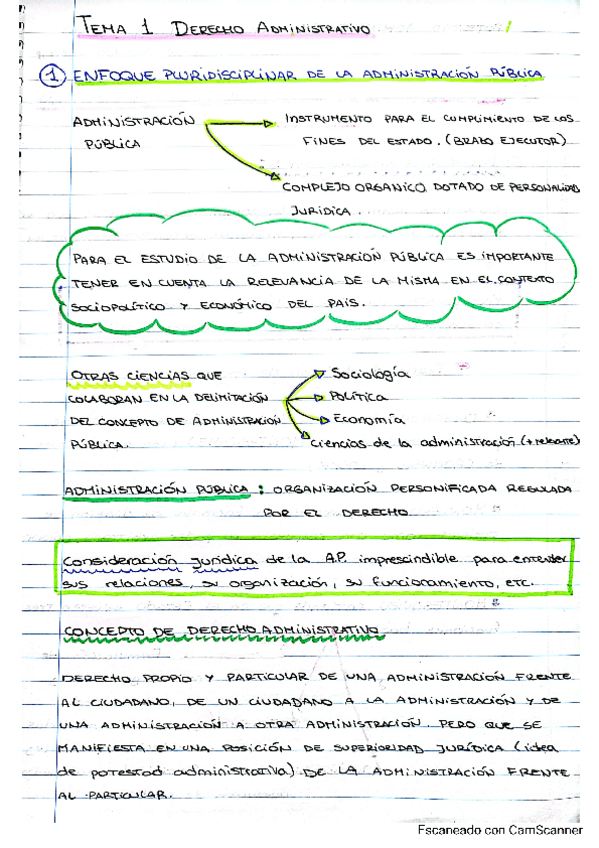 TEMA 1 DERECHO ADMINISTRATIVO
1 ENFOQUE PLURIDISCIPLINAR DE LA ADMINISTRACIÓN PÚBLICA
ADMINISTRACIÓN PÚBLICA
INSTRUMENTO PARA EL CUMPLIMIENTO DE LOS
FINES DEL ESTADO. (BRAZO EJECUTOR)
COMPLEJO ORGANICO DOTADO DE PERSONALIDAD
JURIDICA.
PARA EL ESTUDIO DE LA ADMINISTRACIÓN PÚBLICA ES IMPORTANTE
TENER EN CUENTA LA RELEVANCIA DE LA MISMA EN EL CONTEXTO
SOCIOPOLÍTICO Y ECONÓMICO DEL PAIS.
OTRAS CIENCIAS QUE
COLABORAN EN LA DELIMITACIÓN
DEL CONCEPTO DE ADMINISTRACIÓN
PÚBLICA.
Sociología
Política
Economía
Ciencias de la administración (+ relevante)
ADMINISTRACIÓN PÚBLICA : ORGANIZACIÓN PERSONIFICADA REGULADA
POR EL DERECHO
Consideración jurídica de la A.P. imprescindible para entender
sus relaciones, su organización, su funcionamiento, etc.
CONCEPTO DE DERECHO ADMINISTRATIVO
DERECHO PROPIO Y PARTICULAR DE UNA ADMINISTRACIÓN FRENTE
AL CIUDADANO, DE UN CIUDADANO A LA ADMINISTRACIÓN Y DE
UNA ADMINISTRACIÓN A OTRA ADMINISTRACIÓN. PERO QUE SE
MANIFIESTA EN UNA POSICIÓN DE SUPERIORIDAD JURÍDICA (idea
de potestad administrativa) DE LA ADMINISTRACIÓN FRENTE
AL PARTICULAR.
Escaneado con CamScanner